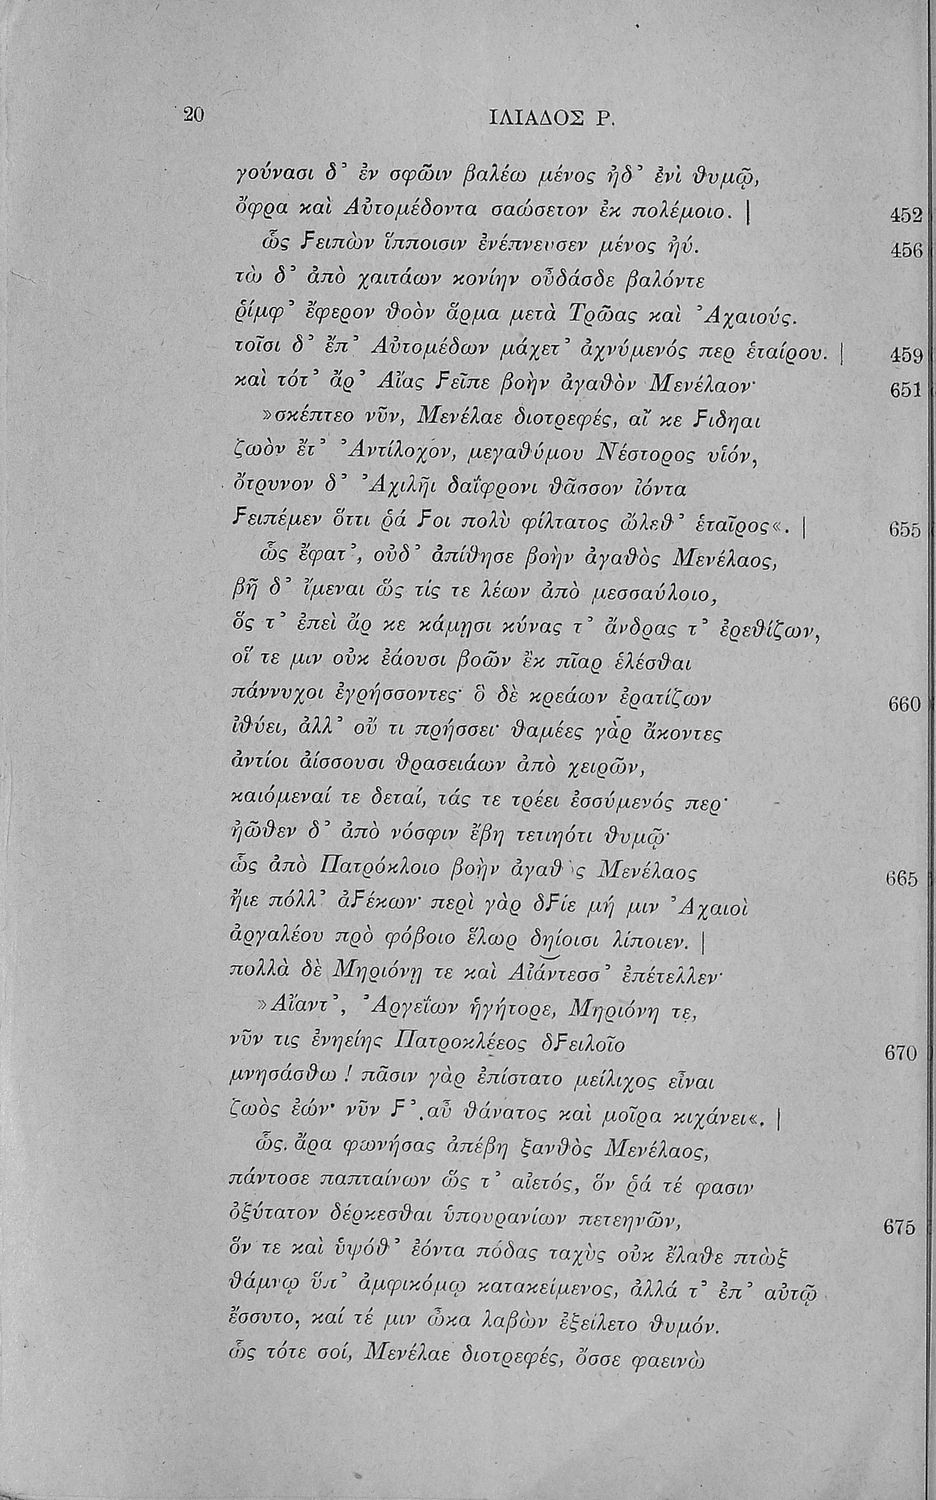 20 ΙΛΙΑΔΟΣ Ρ.
γούνασι δ’ ἐν σφῶιν βαλέω μένος ἠδ’ ἐνὶ θυμῷ,
ὄφρα καὶ Αὐτομέδοντα σαώσετον ἐκ πολέμοιο. | 452
ὣς Ϝειπὼν ἵπποισιν ἐνέπνευσεν μένος ἠύ. 456
τὼ δ’ ἀπὸ χαιτάων κονίην οὖδάσδε βαλόντε
ῥίμφ’ ἔφερον θοὸν ἅρμα μετὰ Τρῶας καὶ ’Αχαιούς.
τοῖσι δ’ ἔπ’ Αὐτομέδων μάχετ’ ἀχνύμενός περ ἑταίρου. | 459
καὶ τότ’ ἄρ’ Αἴας Ϝεῖπε βοὴν ἀγαθὸν Μενέλαον· 651
»σκέπτεο νῦν, Μενέλαε διοτρεφές, αἴ κε Ϝίδηαι
ζωὸν ἔτ’ ’Αντίλοχον, μεγαθύμου Νέστορος υἱόν,
ὄτρυνον δ’ ’Αχιλῆι δαΐφρονι θᾶσσον ἰόντα
Ϝειπέμεν ὅττι ῥά Ϝοι πολὺ φίλτατος ὤλεθ’ ἑταῖρος«. | 655
ὣς ἔφατ’, οὐδ’ ἀπίθησε βοὴν ἀγαθὸς Μενέλαος,
βῆ δ’ ἴμεναι ὥς τίς τε λέων ἀπὸ μεσσαύλοιο,
ὅς τ’ ἐπεὶ ἄρ κε κάμῃσι κύνας τ’ ἄνδρας τ’ ἐρεθίζων,
οἵ τε μιν οὐκ ἐάουσι βοῶν ἐκ πῖαρ ἑλέσθαι
πάννυχοι ἐγρήσσοντες· ὃ δὲ κρεάων ἐρατίζων 660
ἰθύει, ἀλλ’ οὔ τι πρήσσει· θαμέες γὰρ ἄκοντες
ἀντίοι ἀίσσουσι θρασειάων ἀπὸ χειρῶν,
καιόμεναί τε δεταί, τάς τε τρέει ἐσσύμενός περ·
ἠῶθεν δ’ ἀπὸ νόσφιν ἔβη τετιηότι θυμῷ·
ὣς ἀπὸ Πατρόκλοιο βοὴν ἀγαθὸς Μενέλαος 665
ἤιε πόλλ’ ἀϜέκων· περὶ γὰρ δϜίε μή μιν ’Αχαιοὶ
ἀργαλέου πρὸ φόβοιο ἕλωρ δηίοισι λίποιεν. |
πολλὰ δὲ Μηριόνῃ τε καὶ Αἰάντεσσ’ ἐπέτελλεν·
»Αἴαντ’, ’Αργεΐων ἡγήτορε, Μηριόνη τε,
νῦν τις ἐνηείης Πατροκλέεος δϜειλοῖο 670
μνησάσθω! πᾶσιν γὰρ ἐπίστατο μείλιχος εἶναι
ζωὸς ἐών· νῦν Ϝ’ αὖ θάνατος καὶ μοῖρα κιχάνει«. |
ὣς ἄρα φωνήσας ἀπέβη ξανθὸς Μενέλαος,
πάντοσε παπταίνων ὥς τ’ αἰετός, ὅν ῥά τέ φασιν
ὀξύτατον δέρκεσθαι ὑπουρανίων πετεηνῶν, 675
ὅν τε καὶ ὑψόθ’ ἐόντα πόδας ταχὺς οὐκ ἔλαθε πτὼξ
θάμνῳ ὕπ’ ἀμφικόμῳ κατακείμενος, ἀλλά τ’ ἐπ’ αὐτῷ
ἔσσυτο, καί τέ μιν ὦκα λαβὼν ἐξείλετο θυμόν.
ὣς τότε σοί, Μενέλαε διοτρεφές, ὄσσε φαεινὼ